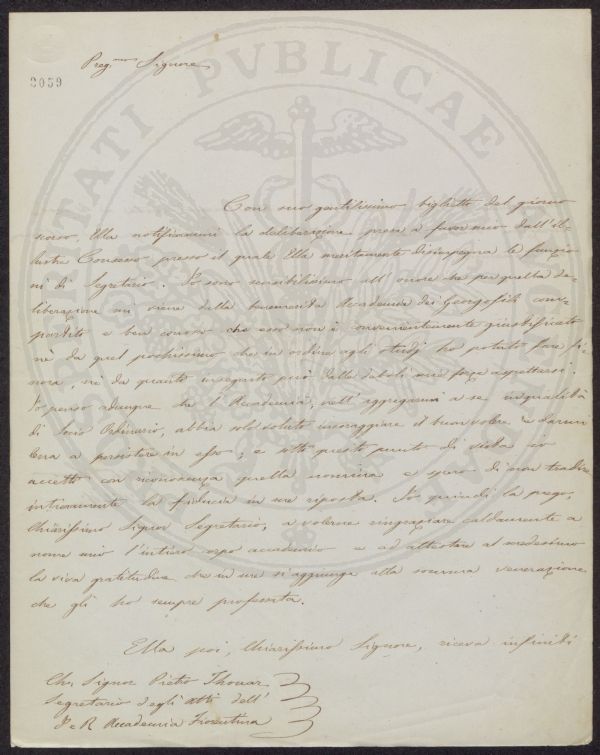 Preg.mo Signore
3059
Con suo gentilissimo biglietto del giorno
scorso, Ella notificavami la deliberazione presa a favor mio dall'il-
lustre Consesso presso il quale Ella meritamente disimpegna le funzio-
ni di Segretario. Io sono sensibilissimo all'onore che per quella de-
liberazione mi viene dalla benemerita Accademia dei Georgofili com-
partito e ben conosco che esso non è convenientemente giustificato
nè da quel pochissimo che in ordine agli studj ho potuto fare fi-
nora, nè da quanto in seguito può dalle deboli mie forze aspettarsi.
Io penso adunque che l'Accademia, nell'aggregarmi a se in qualità
di Socio Ordinario, abbia solo voluto incoraggiare il buon volere e
a persistere in esso; e sotto questo punto di vista io
accetto con riconoscenza quella nomina e spero di non tradire
intieramente la fiducia in me riposta. Io quindi la prego,
Chiarissimo Signor Segretario, a volerne ringraziare caldamente a
nome mio l'intiero corpo accademico e ad attestare al medesimo
la viva gratitudine che in me si aggiunge alla somma venerazione
che gli ho sempre professata.
Ella poi, Chiarissimo Signore, riceva infiniti
Ch. Signor Pietro Thouar
Segretario degli Atti dell'
I e R Accademia Fiorentina
PUBLICAE